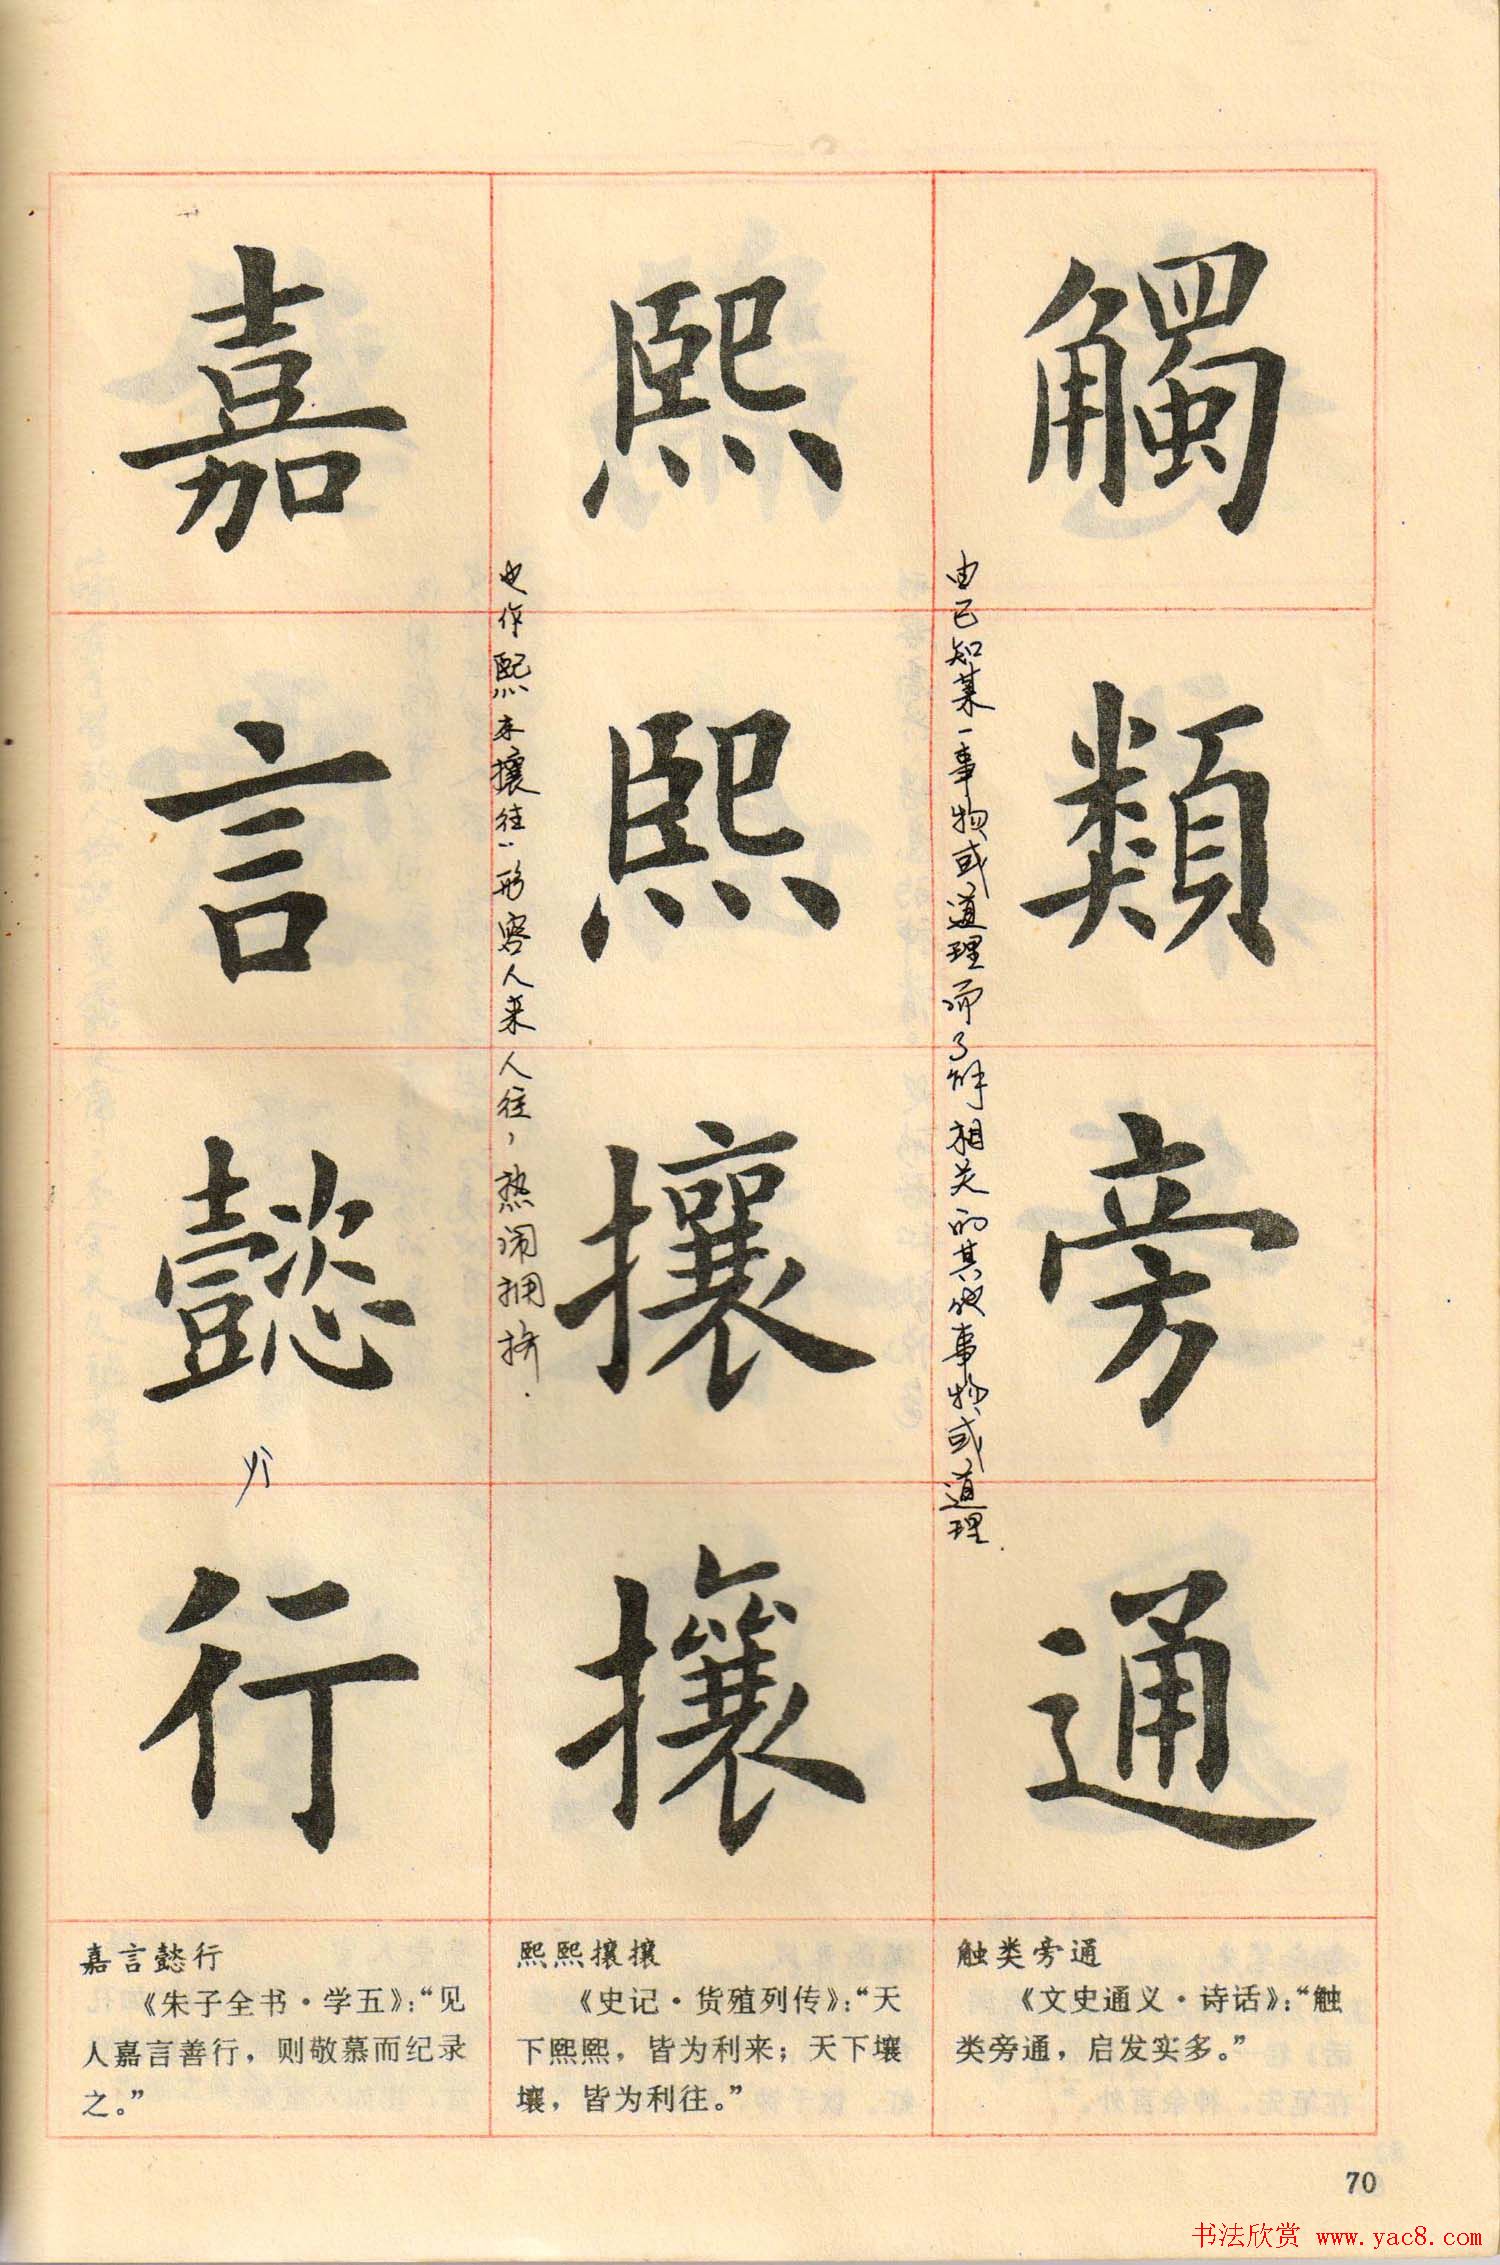 觸類旁通
由已知某一事物或道理而了解相关的其他事物或道理.
熙熙攘攘
也作熙来攘往：形容人来人往，热闹拥挤.
嘉言懿行
触类旁通
《文史通义·诗话》：“触
类旁通，启发实多。”
熙熙攘攘
《史记·货殖列传》：“天
下熙熙，皆为利来；天下壤
壤，皆为利往。”
嘉言懿行
《朱子全书·学五》：“见
人嘉言善行，则敬慕而纪录
之。”
70
书法欣赏 www.yac8.com